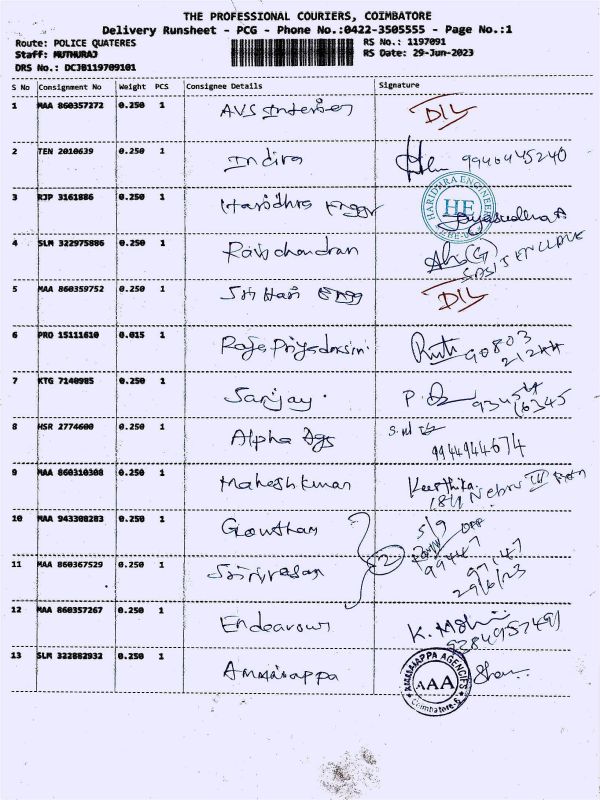 THE PROFESSIONAL COURIERS, COIMBATORE
Delivery Runsheet - PCG - Phone No.:0422-3505555 - Page No.:1
Route: POLICE QUATERES RS No.: 1197091
Staff: MUTHURAJ RS Date: 29-Jun-2023
DRS No.: DCJB119709101
S No Consignment No Weight PCS Consignee Details Signature
1 MAA 860357272 0.250 1 AVS DIL
2 TEN 2010639 0.250 1 Indira 9946445240
3 RJP 3161886 0.250 1 Haridhra Engr HARIDHRA ENGINEE HE Jayasudha A
4 SLM 322975886 0.250 1 Ravichandran
5 MAA 860359752 0.250 1 Sri Hari Engg DIL
6 PRO 15111610 0.015 1 Raja Priyadarsini 90803
7 KTG 7140985 0.250 1 Sanjay.
8 HSR 2774600 0.250 1 Alpha Ags 9944944674
9 MAA 860310308 0.250 1 Maheshkumar Keerthika
10 MAA 943308283 0.250 1 Gowtham 5/9
11 MAA 860367529 0.250 1 Srinivasan 2 99447 97147
29/6/23
12 MAA 860357267 0.250 1 Endeavour
13 SLM 322882932 0.250 1 Ammaiappa AMMAIAPPA AGENCIES AAA Coimbatore-6